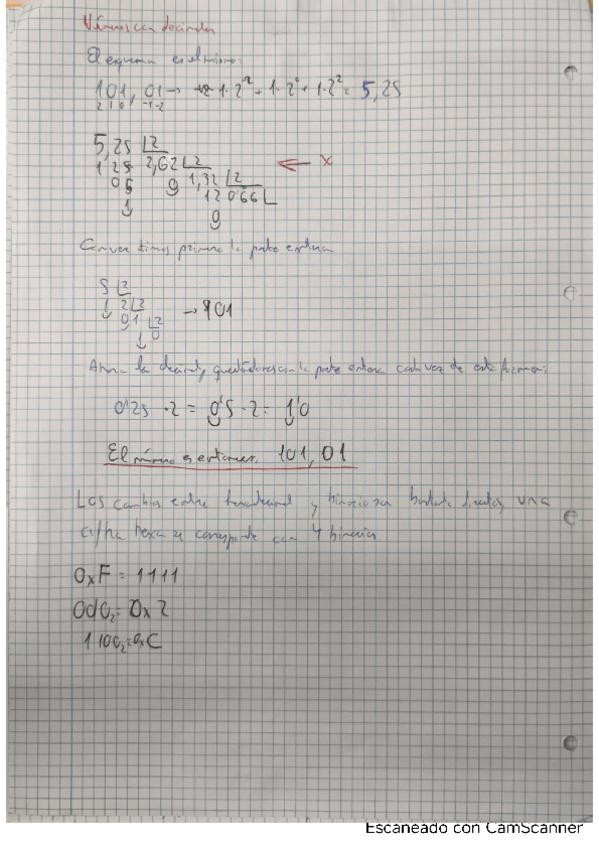 Números con decimales
El esquema es el mismo:
101,01 → 1·2⁻² + 1·2⁰ + 1·2² = 5,25
2 1 0 -1 -2
5,25 |2
1 25 2,62 |2
05 0 1,32 |2
1 12 0'66 |
0
← x
Convertimos primero la parte entera
5 |2
1 2 |2
0 1 |2
1 0
→ 101
Ahora la decimal, quedándonos con la parte entera cada vez de esta forma:
0'25 · 2 = 0'5 · 2 = 1'0
El número es entonces 101,01
Los cambios entre hexadecimal y binario son bastante directos, una
cifra hexa se corresponde con 4 binarios.
0xF = 1111
0010₂ = 0x2
1100₂ = 0xC
Escaneado con CamScanner